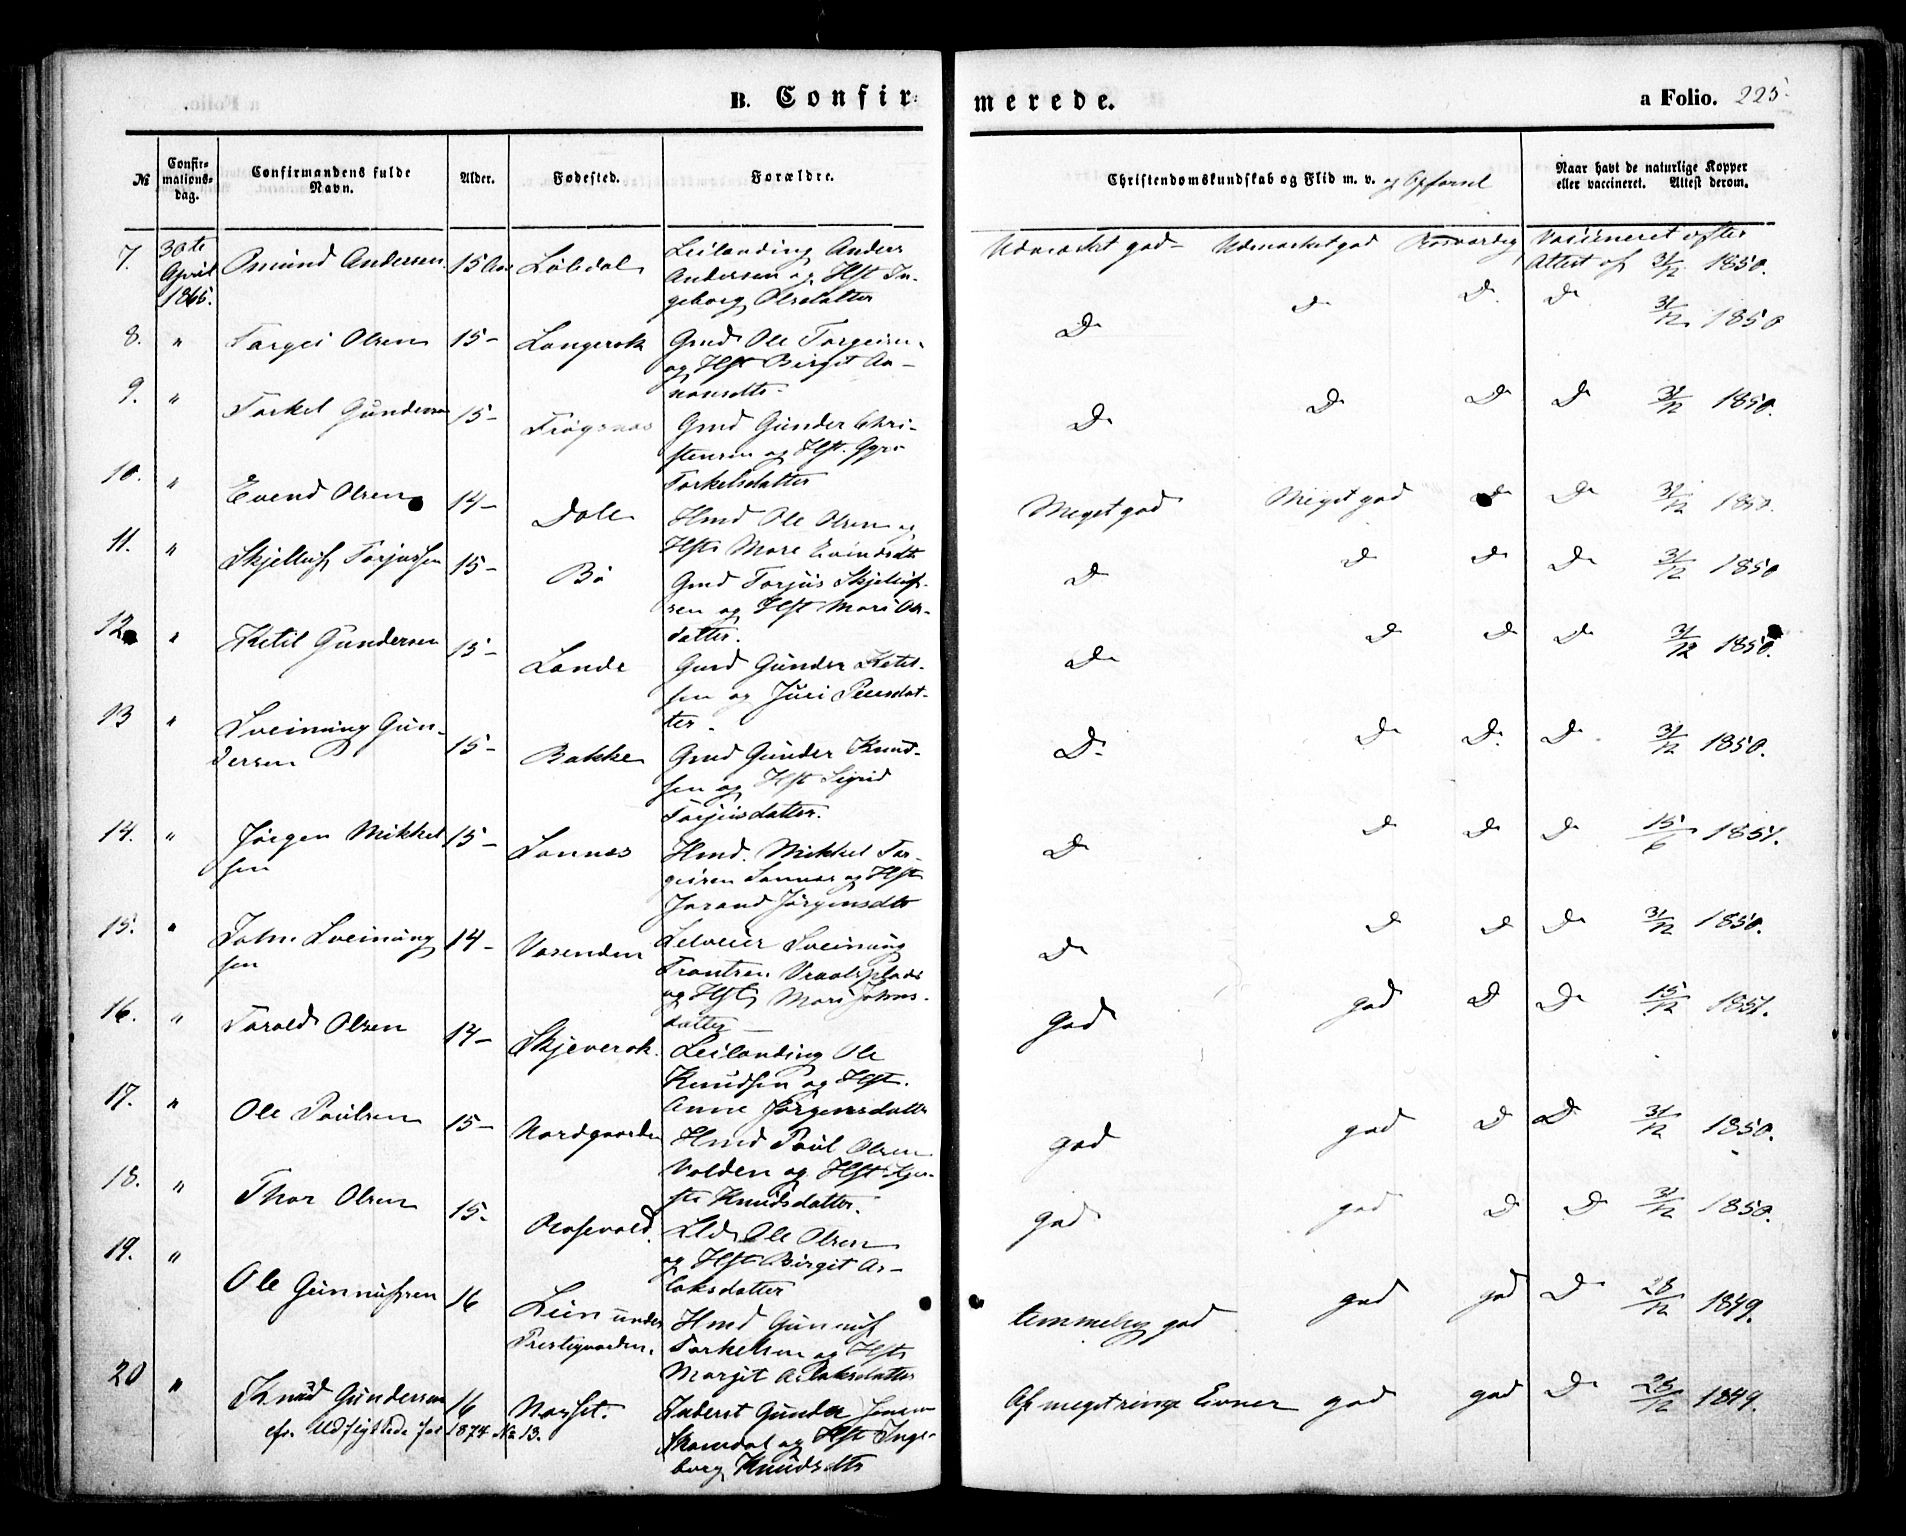 B. Confir-
merede.
a Folio. 225
№
Confir-
mations-
dag.
Confirmandens fulde
Navn.
Alder.
Fødested.
Forældre.
Christendomskundskab og Flid m. v. og Opførsel
Naar havt de naturlige Kopper
eller vaccineret. Attest derom.
7. 30te April 1865. Asmund Andersen 15 Aar Løbdal Leilænding Anders
Andersen og Hst In-
geborg Olsdatter
Udmærket god Udmærket god Vaccineret efter
Attest af 31/12 1850.
8. " Targei Olsen 15 - Langerak Gmd Ole Targeisen
og Hst Birgit Aa-
nonsdtr
Do Do Do Do 31/12 1850
9. " Torkel Gundersen 15 - Gmd Gunder Chri-
stensen og Hst. Gyro
Torkelsdatter
Do Do Do Do 31/12 1850.
10. " Evend Olsen 14 - Dale Hmd Ole Olsen og
Hst Mare Evindsdtr
Meget god Meget god Do Do 31/12 1850.
11. " Skjelluf Torjussen 15 - Bø Gmd Torjus Skjeluf-
sen og Hst Mari Ols-
datter.
Do Do Do Do 31/12 1850
12. " Ketil Gundersen 15 - Lande Gmd Gunder Ketil-
sen og Juri Peersdat-
ter.
Do Do Do Do 31/12 1850.
13 " Sveinung Gun-
dersen 15 - Bakke Gmd Gunder Knud-
sen og Hst Sigrid
Torjusdatter.
Do Do Do Do 31/12 1850.
14. " Jørgen Mikkel
sen 15 - Sannes Hmd. Mikkel Tar-
geisen Sannes og Hst
Jorand Jørgensdtr
Do Do Do Do 15/6 1851.
15. " John Sveinung
sen 14 - Vasenden Selveier Sveinung
Vraalsplads
og Hst Mari Johns-
datter
Do Do Do Do 31/12 1850.
16. " Torald Olsen 14 - Skjeverak. Leilænding Ole
Knudsen og Hst.
Anne Jørgensdatter
god god Do Do 15/12 1851.
17. " Ole Paulsen 15 - Nordgaarden Hmd Paul Olsen
Valden og Hst Kjer-
sti Knudsdatter.
god god Do Do 31/12 1850.
18. " Thor Olsen 15. Rosevold. Ole Olsen
og Hst Birgit As-
laksdatter
god god Do Do 31/12 1850.
19. " Ole Gunnufsen 16 Lien under
Prestegaarden. Hmd Gunnuf
Torkelsen og Hst
Margit Aslaksdatter
temmelig god god god Do 28/12 1849.
20 " Knud Gundersen 16 Næsset. Inderst Gunder Jensen
og Hst Inge-
borg Knudsdtr
Af meget ringe Evner god god Do 28/12 1849.
cfr. Udflyttede for 1874 No 13.